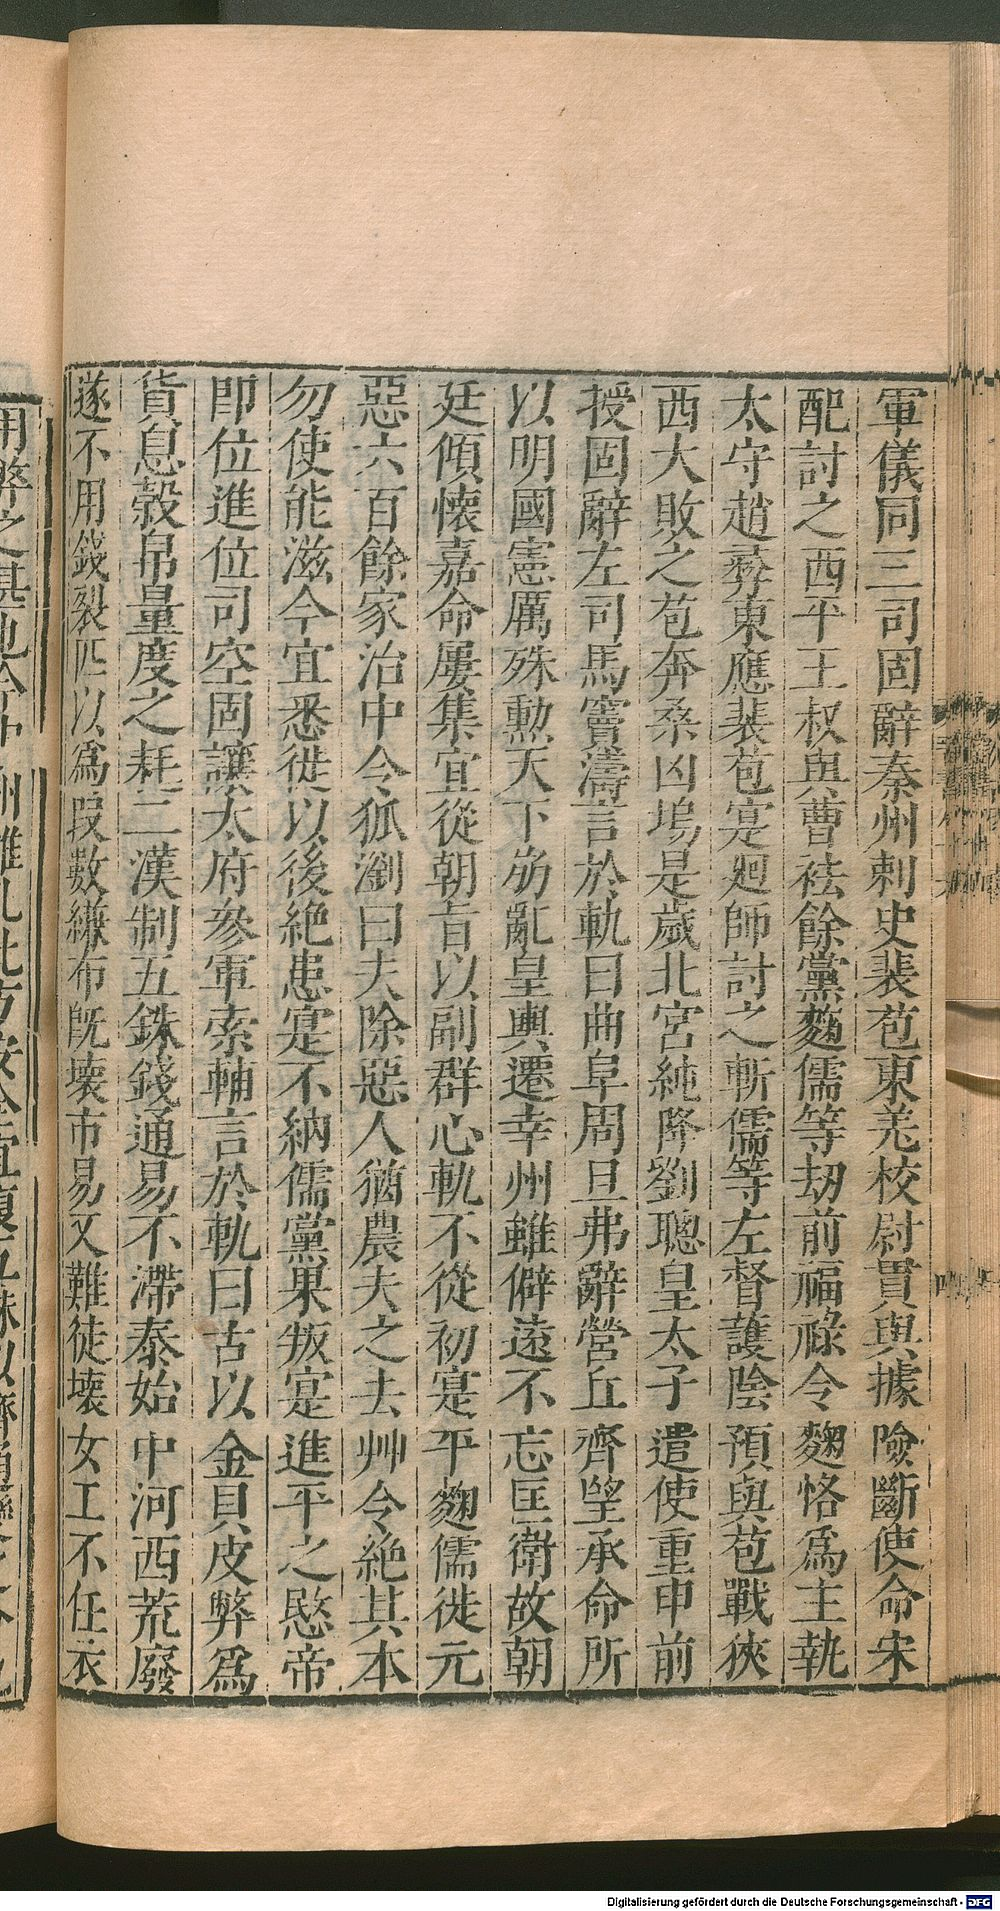 軍儀同三司固辭秦州刺史裴苞東羌校尉貫與據險斷使命宋
配討之西平王叔與曹袪餘黨麴儒等劫前福祿令麴恪爲主執
太守趙彝東應裴苞寔廻師討之斬儒等左督護陰預與苞戰狹
西大敗之苞奔桑凶塢是歲北宮純降劉聰皇太子遣使重申前
授固辭左司馬竇濤言於軌曰曲阜周旦弗辭營丘齊望承命所
以明國憲厲殊勲天下崩亂皇輿遷幸州雖僻遠不忘匡衛故朝
廷傾懷嘉命屢集宜從朝旨以副群心軌不從初寔平麴儒徙元
惡六百餘家治中令狐瀏曰夫除惡人猶農夫之去艸令絶其本
勿使能滋今宜悉徙以後絶患寔不納儒黨果叛寔進平之愍帝
卽位進位司空固讓太府參軍索輔言於軌曰古以金貝皮弊爲
貨息榖帛量度之耗二漢制五銖錢通易不滯泰始中河西荒廢
遂不用錢裂匹以爲叚數縑布旣壊市易又難徒壊女工不任衣
用弊之甚也今中州雖亂此方安全宜復五銖以濟通變
Digitalisierung gefördert durch die Deutsche Forschungsgemeinschaft - DFG